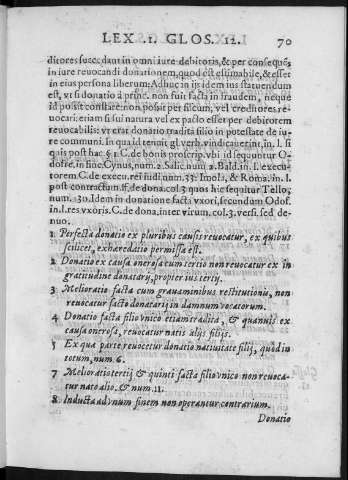 LEX. 1. GLOS. 12. 70
ditores succedant in omni iure debitoris, & per consequēs
in iure reuocandi donationem, quod est estimabile, & esset
in eius persona liberum: Adhuc an ijs idem ius statuendum
est, vt si donatio à princ. non fuit facta in fraudem, neque
id possit constare: non possit per fiscum, vel creditores re-
uocari: etiam si sui natura vel ex pacto esset per debitorem
reuocabilis: vt erat donatio tradita filio in potestate de iu-
re communi. in qua id tenit gl. verb. vindicauerint, in. l. si
quis post hac § 1. C. de bonis proscrip. vbi id sequuntur O-
dofre. in fine, Cynus, num. 2. Salic. num. 2. Bald. in. l. execu-
torem. C. de execu. rei iudi. num. 33. Imola, & Roma. in. l.
post contractum. ff. de dona. col. 3. quos hic sequitur Tello,
num. 30. Idem in donatione facta vxori, secundum Odof.
in. l. res vxoris. C. de dona. inter virum. col. 3. versi. sed de-
nuo.
1 Perfecta donatio ex pluribus causis reuocatur, ex quibus
scilicet, exhæredatio permissa est.
2 Donatio ex causa onerosa cum tertio non reuocatur ex in
gratitudine donatarij, propter ius tertij.
3 Melioratio facta cum grauaminibus restitutioni, non
reuocatur facto donatarij in damnum vocatorum.
4 Donatio facta filio vnico etiam tradita, & quamuis ex
causa onerosa, reuocatur natis alijs filijs.
5 Ex qua parte reuocetur donatio natiuitate filij, quod in
totum, num. 6.
7 Melioratio tertij & quinti facta filio vnico non reuoca-
tur nato alio. & num. 11.
8 Inducta ad vnum finem non operantur contrarium.
Donatio